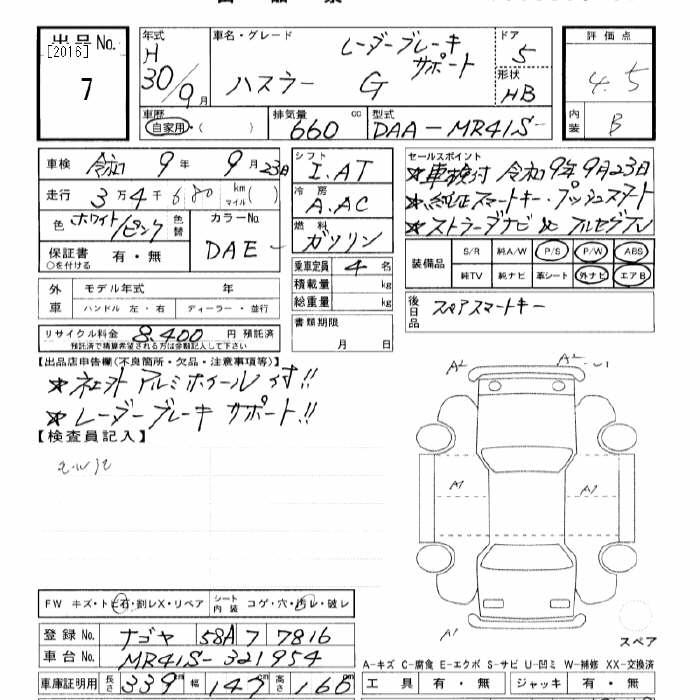 出品No.
[2016]
7
年式 車名・グレード レーダーブレーキ サポート ドア 5
H 30/9月 ハスラー G 形状 HB
評価点 4.5
内装 B
車歴 自家用・( ) 排気量 660 cc 型式 DAA-MR41S-
車検 令和 9年 9月 23日
走行 3万4千680 km マイル( )
色 ホワイト/ピンク 色替 カラーNo. DAE-
保証書 有・無
○を付ける
シフト I.AT
冷房 A.AC
燃料 ガソリン
乗車定員 4名
積載量 kg
総重量 kg
書類期限
月 日
セールスポイント
★車検付 令和9年9月23日
★純正スマートキー・プッシュスタート
★ストラーダナビ & フルセグTV
装備品 S/R 純A/W P/S P/W ABS
純TV 純ナビ 革シート 外ナビ エアB
後日品 スペアスマートキー
外車 モデル年式 年
ハンドル 左・右 ディーラー・並行
リサイクル料金 8,400 円 預託済
預託済で精算希望される方は金額記入して下さい
【出品店申告欄(不良箇所・欠品・注意事項等)】
★社外アルミホイール付!!
★レーダーブレーキサポート!!
【検査員記入】
A2 A2
A1 A1
A1
FW キズ・トビ石・割レX・リペア シート内装 コゲ・穴・汚レ・破レ
登録No. ナゴヤ 58A 7 7816
車台No. MR41S-321954
車庫証明用 長さ 339 cm 幅 147 cm 高さ 166 cm
スペア
A-キズ C-腐食 E-エクボ S-サビ U-凹ミ W-補修 XX-交換済
工具 有・無 ジャッキ 有・無